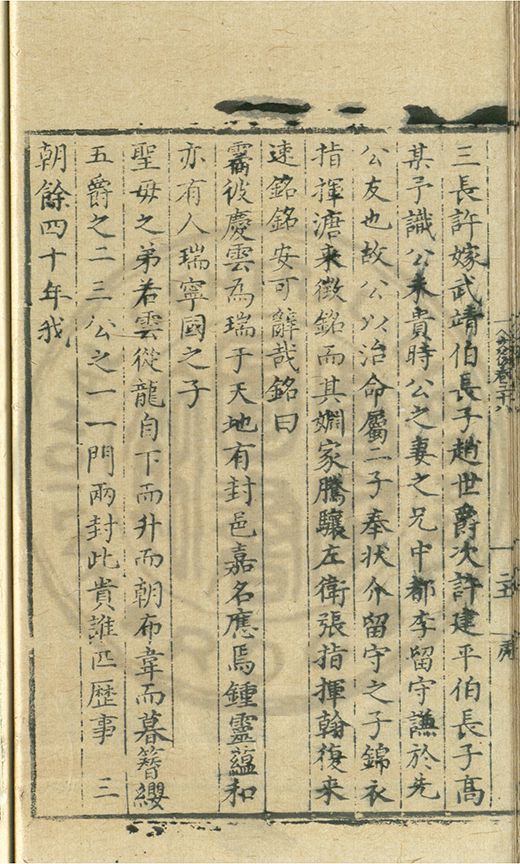 三長許嫁武靖伯長子趙世爵次許建平伯長子高
某予識公未貴時公之妻之兄中都李留守謙於先
公友也故公以治命屬二子奉狀介留守之子錦衣
指揮溏来徵銘而其婣家騰驤左衛張指揮翰復来
速銘銘安可辭哉銘曰
靄彼慶雲為瑞于天地有封邑嘉名應焉鍾靈蘊和
亦有人瑞寧國之子
聖毋之弟若雲從龍自下而升而朝布韋而暮簪纓
五爵之二三公之一一門兩封此貴誰匹歴事三
朝餘四十年我